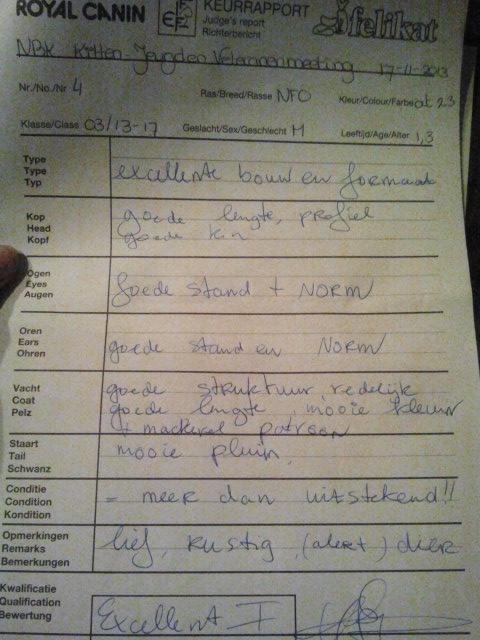 ROYAL CANIN
KEURRAPPORT
Judge's report
Richterbericht
felikat
NBK Kitten Jeugd en Veteranenmeeting 17-11-2013
Nr./No./Nr 4 Ras/Breed/Rasse NFO Kleur/Colour/Farbe at 23
Klasse/Class 03/13-17 Geslacht/Sex/Geschlecht M Leeftijd/Age/Alter 1,3
Type
Type
Typ
excellente bouw en formaat
Kop
Head
Kopf
goede lengte, profiel
goede kin
Ogen
Eyes
Augen
goede stand + NORM
Oren
Ears
Ohren
goede stand en NORM
Vacht
Coat
Pelz
goede struktuur, redelijk
goede lengte, mooie kleur
+ mackerel patroon
Staart
Tail
Schwanz
mooie pluim,
Conditie
Condition
Kondition
= meer dan uitstekend!!
Opmerkingen
Remarks
Bemerkungen
lief, rustig, (alert) dier
Kwalificatie
Qualification
Bewertung
Excellent I